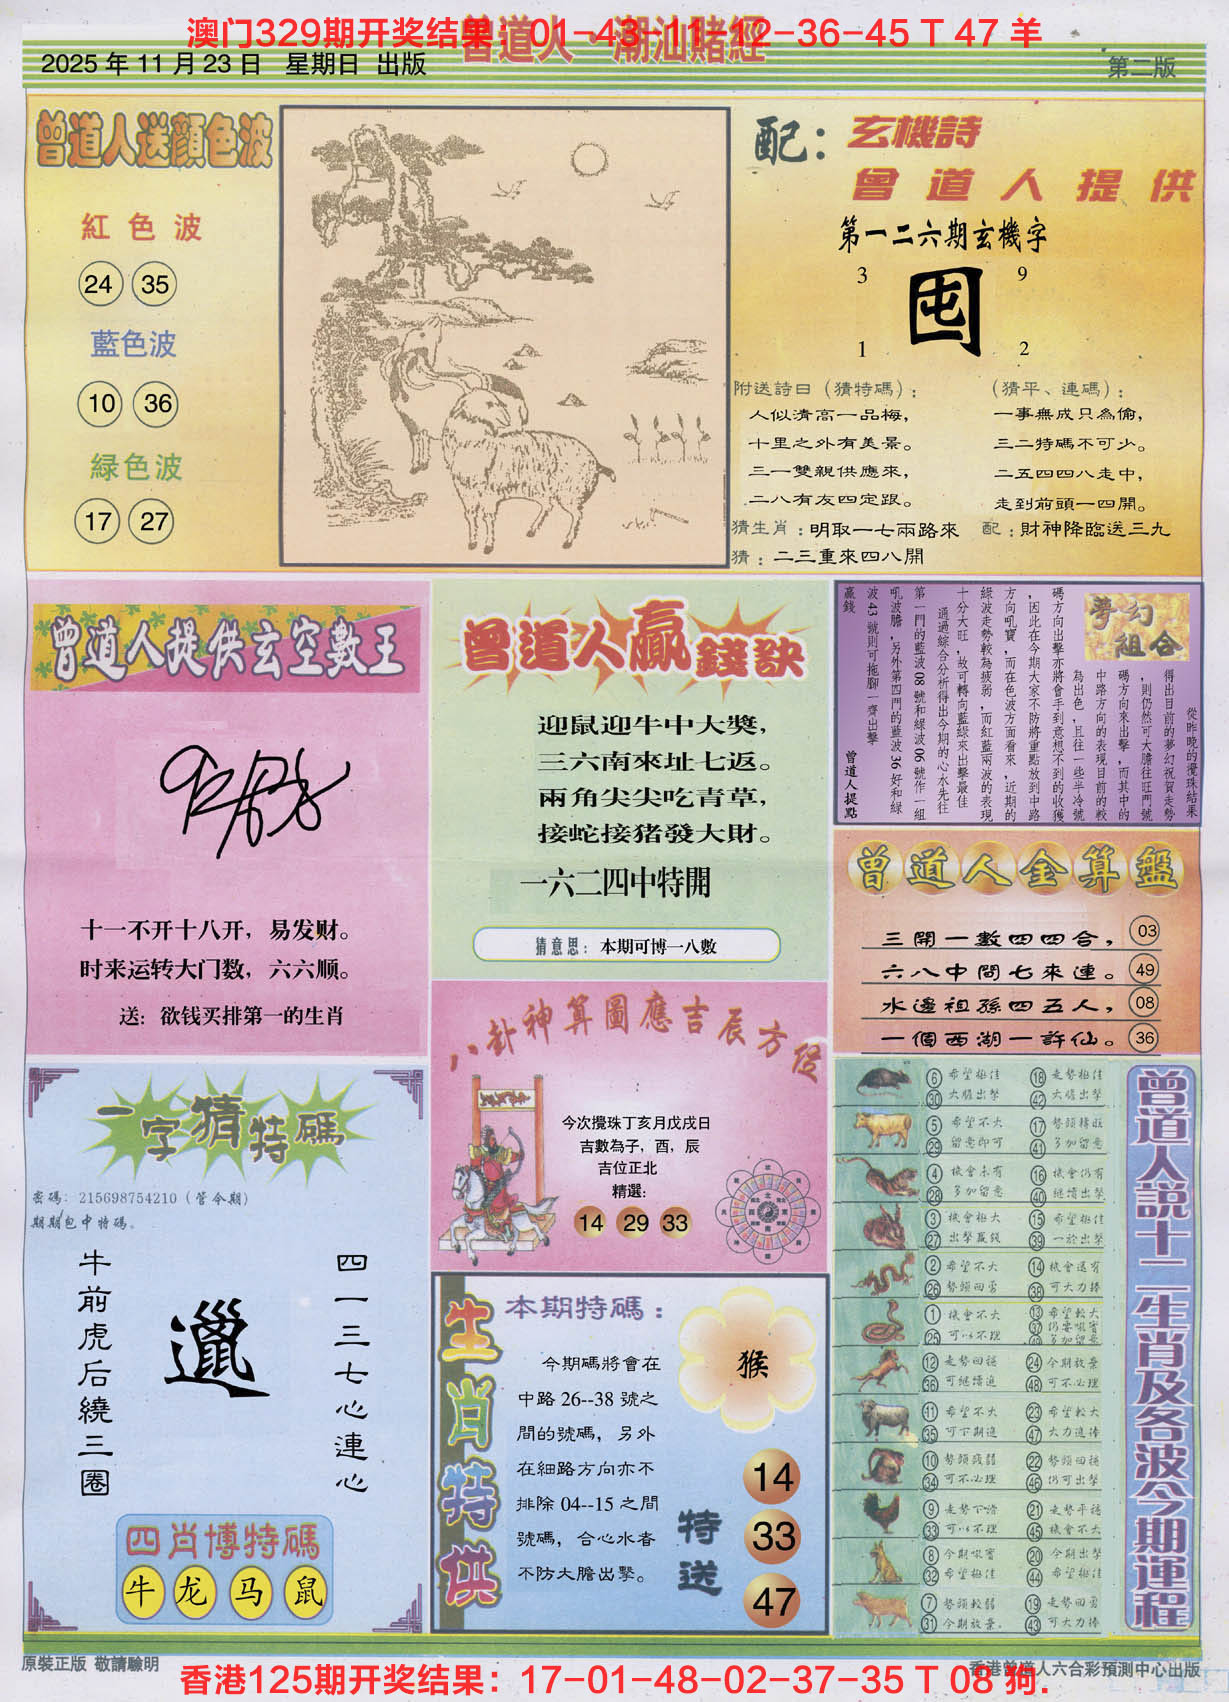 澳门329期开奖结果：01-43-11-12-36-45 T 47 羊
曾道人·潮汕賭經
2025 年 11 月 23 日 星期日 出版
第二版
曾道人送顔色波
紅色波
24 35
藍色波
10 36
緑色波
17 27
配：玄機詩
曾道人提供
第一二六期玄機字
3 9
囤
1 2
附送詩曰（猜特碼）：
人似清高一品梅，
十里之外有美景。
三一雙親供應來，
二八有友四定跟。
（猜平、連碼）：
一事無成只為偷，
三二特碼不可少。
二五四四八走中，
走到前頭一四開。
猜生肖：明取一七兩路來
配：財神降臨送三九
猜：二三重來四八開
曾道人提供玄空數王
十一不开十八开，易发财。
时来运转大门数，六六顺。
送：欲钱买排第一的生肖
曾道人贏錢訣
迎鼠迎牛中大獎，
三六南來址七返。
兩角尖尖吃青草，
接蛇接猪發大財。
一六二四中特開
猜意思：本期可博一八數
夢幻組合
從昨晚的攪珠結果
得出目前的夢幻祝賀走勢
，則仍然可大膽往旺門號
碼方向來出擊，而其中的
中路方向的表現目前的較
為出色，且往一些半冷號
碼方向出擊亦將會手到意想不到的收獲
，因此在今期大家不防將重點放到中路
方向吼寶，而在色波方面看來，近期的
綠波走勢較為疲弱，而紅藍兩波的表現
十分大旺，故可轉向藍綠來出擊最佳
通過綜合分析得出今期的心水先往
第一門的藍波 08 號和綠波 06 號作一組
吼波膽，另外第四門的藍波 36 好和綠
波 43 號則可拖腳一齊出擊
贏錢
曾道人提點
曾道人金算盤
三開一數四四合， 03
六八中間七來連。 49
水邊祖孫四五人， 08
一個西湖一許仙。 36
八卦神算圖應吉辰方位
今次攪珠丁亥月戊戌日
吉數為子，酉，辰
吉位正北
精選:
14 29 33
一字猜特碼
密碼：215698754210（管令期）
期期包中特碼。
牛前虎后繞三圈
邋
四一三七心連心
四肖博特碼
牛 龙 马 鼠
生肖特供
本期特碼：
今期碼將會在
中路 26--38 號之
間的號碼，另外
在細路方向亦不
排除 04--15 之間
號碼，合心水者
不防大膽出擊。
猴
特送
14
33
47
曾道人説十二生肖及各波今期運程
6 希望極佳 18 走勢極佳
30 大膽出擊 42 大膽出擊
5 希望不大 17 勢頭轉旺
29 留意即可 41 多加留意
4 機會未有 16 機會仍有
28 多加留意 40 繼續出擊
3 機會極大 15 希望極佳
27 出擊贏錢 39 一於出擊
2 希望不大 14 機會還有
26 勢頭回勇 38 可大力捧
1 機會不大 13 希望較大
25 可以不理 37 仍要吸寶
49 多加留意
12 走勢回穩 24 今期放棄
36 可繼續追 48 可不必理
11 希望不大 23 希望較大
35 可下期追 47 大力追捧
10 勢頭疲弱 22 勢頭回穩
34 可不必理 46 仍可出擊
9 走勢下滑 21 走勢平穩
33 可以不理 45 機會不大
8 今期吸寶 20 今期出擊
32 希望極佳 44 希望極佳
7 勢頭較弱 19 走勢回勇
31 今期放棄。 43 可大力捧
原裝正版 敬請驗明
香港曾道人六合彩預測中心出版
香港125期开奖结果：17-01-48-02-37-35 T 08 狗.